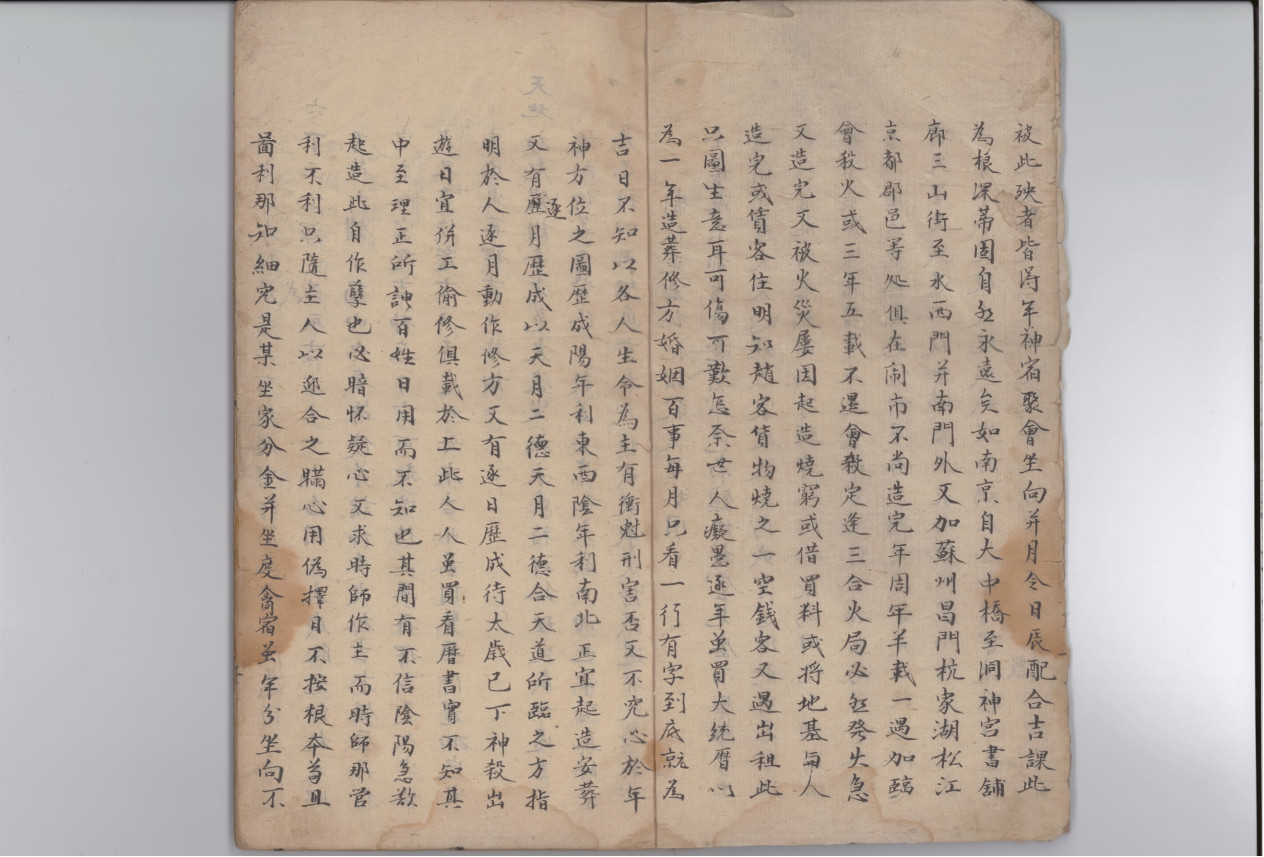 被此殃者皆得年神宿聚會坐向并月令日辰配合吉課此
為根深蒂固自然永遠矣如南京自大中橋至洞神宮書舖
廊三山街至水西門并南門外又加蘇州昌門杭家湖松江
京都郡邑等処俱在鬧市不尚造完年周年半載一遇加臨
會殺火或三年五載不遇會殺定逢三合火局必然發火急
又造完又被火災屢因起造燒窮或借買料或將地基與人
造完或賃客住明知趙客貨物燒之一空錢客又遇出租此
只圖生意耳可傷可歎怎奈世人癡愚逐年虽買大統曆以
為一年造葬修方婚姻百事每月只看一行有字到底就為
吉日不知以各人生命為主有衝尅刑害否又不究心於年
神方位之圖歷成陽年利東西陰年利南北正宜起造安葬
又有歷逐月歷成以天月二德天月二德合天道所臨之方指
明於人逐月動作修方又有逐日歷成待太歲已下神殺出
遊日宜併工偷修俱載於上此人人虽買看曆書實不知其
中至理正所謂百姓日用而不知也其間有不信陰陽急欲
起造此自作孽也必暗怀疑心又求時師作主而時師那管
利不利只隨主人以迎合之瞞心用偽擇日不按根本苟且
啚利那知細究是某坐家分金并坐度禽宿虽年分坐向不